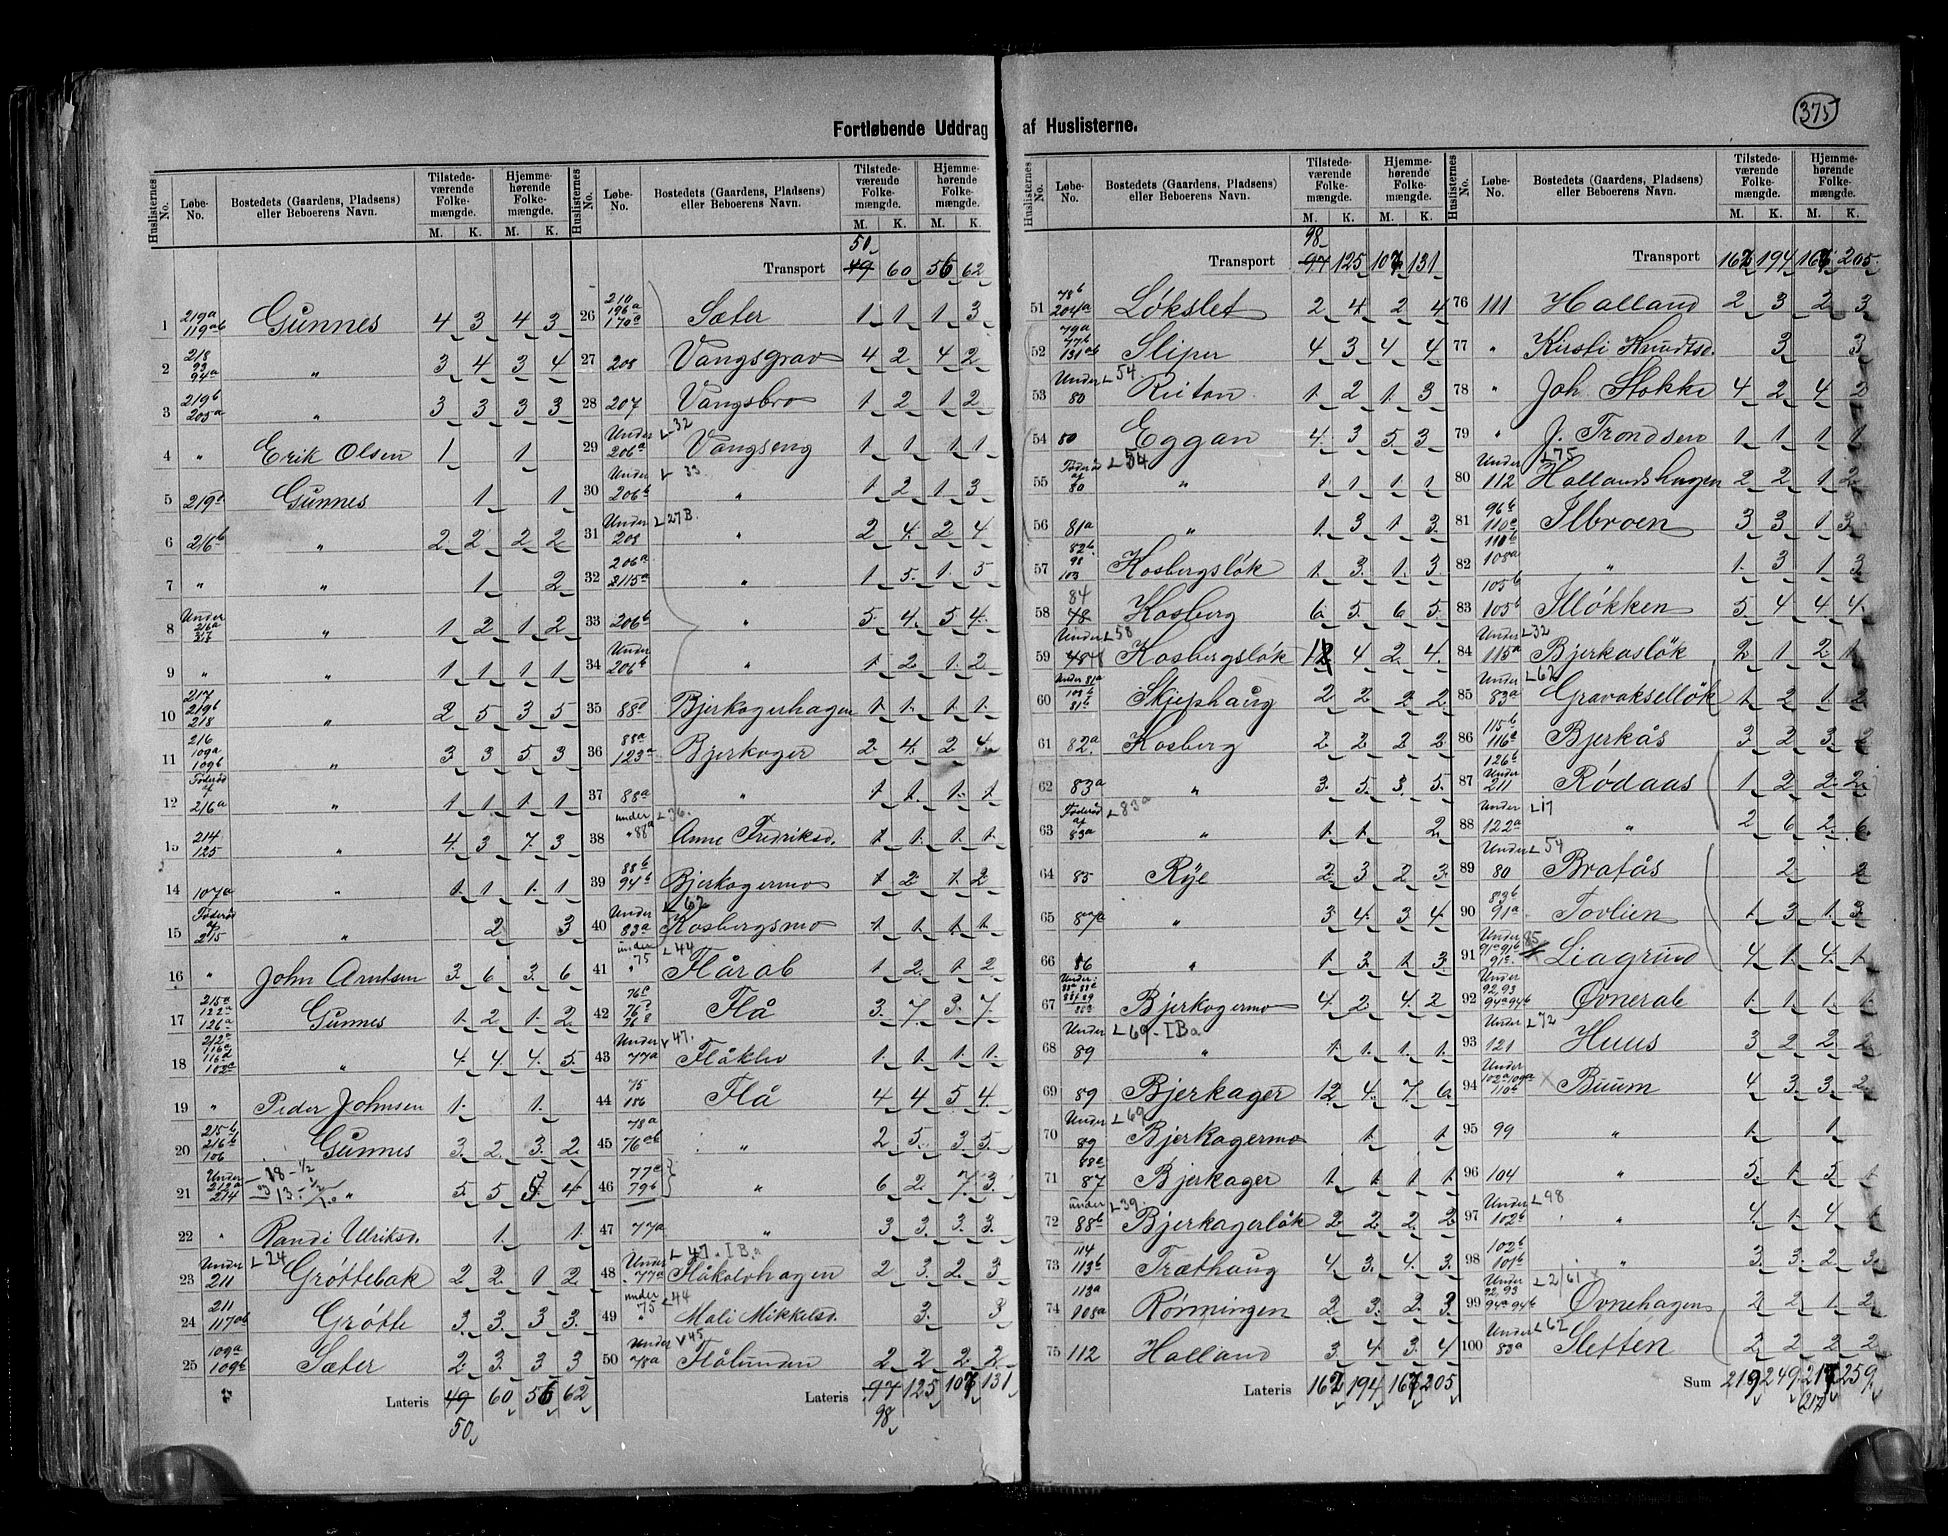 375
Fortløbende Uddrag af Huslisterne.
Huslisternes No. Løbe-No. Bostedets (Gaardens, Pladsen) eller Beboerens Navn. Tilstedeværende Folkemængde. Hjemmehørende Folkemængde. M. K. M. K.
1 219a 119ab Gunnes 4 3 4 3
2 218 93 94a " 3 4 3 4
3 219b 205a " 3 3 3 3
4 " Erik Olsen 1 1
5 219c Gunnes 1 1
6 216b " 2 2 2 2
7 " " 1 2
8 Under 216a 217 " 1 2 1 2
9 " " 1 1 1 1
10 217 219b 218 " 2 5 3 5
11 216 109a 109b " 3 3 5 3
12 Føderåd af 216a " 1 1 1 1
13 214 125 " 4 3 7 3
14 107a " 1 1 1 1
15 Føderåd af 215 " 2 3
16 " John Arntsen 3 6 3 6
17 215a 122a 126a Gunnes 1 2 1 2
18 212a 116a 116d 102a " 4 4 4 5
19 " Peder Johnsen 1 1
20 215b 216b 106 Gunnes 3 2 3 2
21 Under 212a 214 " 5 5 5 4
22 " Randi Ulriksd. 1 1
23 Under 211 L24 Grøttebak 2 2 1 2
24 211 117ab Grøtte 3 3 3 3
25 109a 109b Sæter 2 3 3 3
Lateris 49 60 56 62
50
Transport 49 60 56 62
50
26 210 196a 170a Sæter 1 1 1 3
27 208 Vangsgrav 4 2 4 2
28 207 Vangsbro 1 2 1 2
29 Under 206a L32 Vangseng 1 1 1 1
30 Under 206b L 33 " 1 2 1 3
31 Under 208 L27B. " 2 4 2 4
32 206a 2115a " 1 5 1 5
33 206b " 5 4 5 4
34 Under 206b " 1 2 1 2
35 88d Bjerkagerhagen 1 1 1 1
36 88a 123a Bjerkager 2 4 2 4
37 88a " 1 1 1 1
38 under 88a L36. Anne Fredriksd. 1 1 1 1
39 88b 94b Bjerkagermo 1 2 1 2
40 Under 83a L62 Kosbergsmo 1 1 1 1
41 under 75 L44 Flårab 1 2 1 2
42 76c 76d 76e Flå 3 7 3 7
43 Under 77a V47. Flåklev 1 1 1 1
44 75 186 Flå 4 4 5 4
45 78a 76ab " 2 5 3 5
46 77c 79b " 6 2 7 3
47 77a " 3 3 3 3
48 Under 77a L47. I B.a Flåkolvhagen 2 3 2 3
49 under 75 L44 Mali Mikkelsd. 3 3
50 Under 78a V45 Flålunden 2 2 2 2
Lateris 97 125 107 131
98
Transport 97 125 107 131
98
51 78b 204a Løkslet 2 4 2 4
52 79a 77b 131ab Sliper 4 3 4 4
53 Under 80 L54 Reitan 1 2 1 3
54 80 Eggan 4 3 5 3
55 Føderåd af 80 L54 " 1 1 1 1
56 81a " 1 3 1 3
57 82b 98 103 Kosbergsløk 1 3 1 3
58 84 78 Kosberg 6 5 6 5
59 Under 48 L58 Kosbergsløk 4 2 4
60 Under 81a 108b 81b Skjephaug 2 2 2 2
61 82a Kosberg 2 2 2 2
62 83a " 3 5 3 5
63 Føderåd af 83a L83a " 1 1 2
64 85 Rye 2 3 2 3
65 87a " 3 4 3 4
66 86 " 1 3 1 3
67 Under: 88a 88c 88f 89 88a Bjerkagermo 4 2 4 2
68 Under 89 L69-I B a " 1 1 1 1
69 89 Bjerkager 12 4 7 6
70 Under 89 L69 Bjerkagermo 1 1
71 88e 87 Bjerkager 1 1 1 1
72 under 88b L39. Bjerkagerløk 2 2 2 2
73 114 113b Træthaug 4 3 4 3
74 113a 108a Rønningen 2 3 2 3
75 112 Halland 3 4 3 4
Lateris 167 194 167 205
Transport 167 194 167 205
76 111 Halland 2 3 2 3
77 " Kirsti Knudtsd. 3 3
78 " Joh. Stokke 4 2 4 2
79 " J. Trondsen 1 1 1 1
80 Under 112 L75 Hallandshagen 2 2 1 2
81 96b 110a 110b Ilbroen 3 3 1 3
82 108a " 1 3 1 3
83 105b 105b Iløkken 5 4 4 4
84 Under 115a L32 Bjerkasløk 2 1 2 1
85 Under 83a L62 Gravakselløk 1 2 1 2
86 115b 116a Bjerkås 3 2 3 2
87 126b Under 211 Rødaas 1 2 2 2
88 Under 122a L17 " 2 6 2 6
89 Under 80 L54 Bratås 2 2
90 83b 91a Tovlien 1 3 1 3
91 Under 91a 91b 91c 85 Liagrund 4 1 4 1
92 Under 92,93 94a 94b Øvnerab 1 1 1 1
93 Under 121 L72 Huus 3 2 2 2
94 Under 102a 109a 110b x Buum 4 3 3 2
95 99 " 1 1
96 104 " 5 1 5 1
97 Under 102b L98 " 4 1 4 1
98 102b 101b " 3 3 2 3
99 Under 92,93 94a 94b L2/61 x Øvnehagen 2 2 1 2
100 Under 83a L62 Sletten 2 2 2 2
Sum 219 249 217 259
(217)